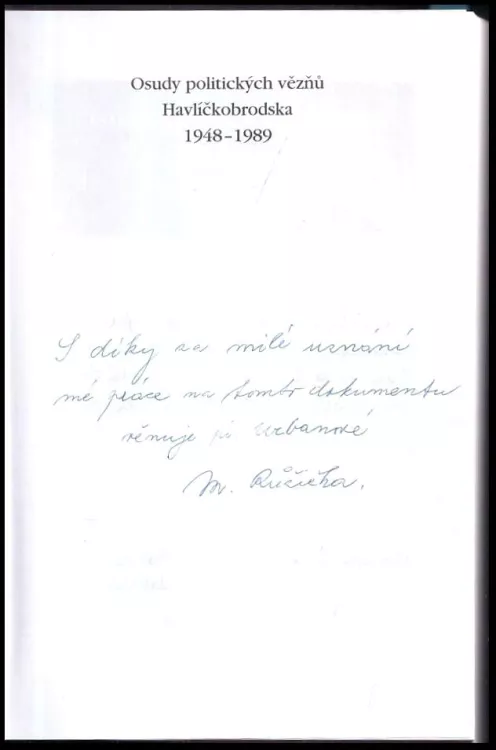 Osudy politických vězňů
Havlíčkobrodska
1948–1989
S díky za milé uznání
mé práce na tomto dokumentu
věnuje pí Urbanové
M. Růžička.